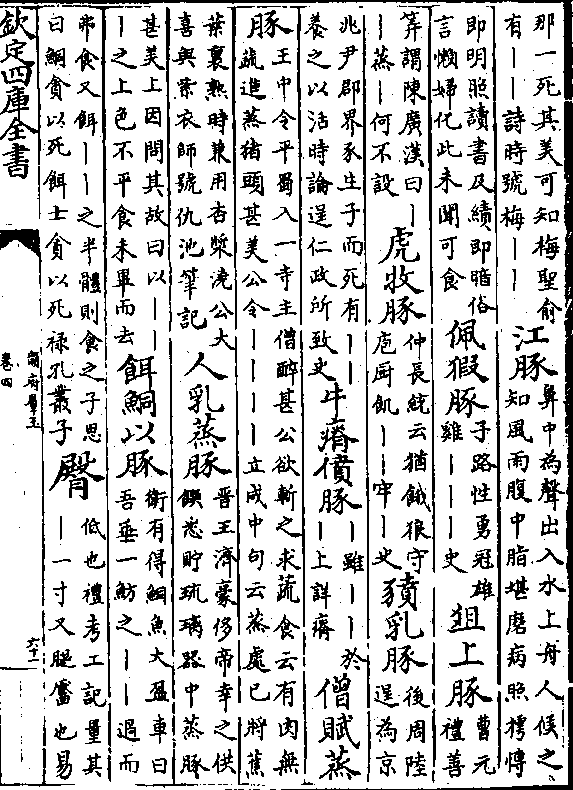 那一死其美可知梅聖俞
有丨丨詩時號梅丨丨
江豚
鼻中為聲出入水上舟人候之
知風雨腹中脂堪磨病照樗愽
即明照讀書及績即暗俗
言懶婦化此未聞可食
佩猳豚
子路性勇冠雄
雞丨丨丨史
俎上豚
曹元
禮善
筭謂陳廣漢曰丨
丨蒸丨何不設
虎牧豚
仲長統云猶餓狼守
庖厨飢丨丨牢丨史
豶乳豚
後周陸
逞為京
兆尹郡界豕生子而死有丨丨
養之以活時論逞仁政所致史
牛瘠僨豚
丨雖丨丨於
丨上詳瘠
僧賦蒸
豚
王中令平蜀入一寺主僧醉甚公欲斬之求蔬食云有肉無
蔬進蒸猪頭甚美公令丨丨丨丨立成中句云蒸處已將蕉
葉裹熟時兼用杏漿澆公大
喜與紫衣師號仇池筆記
人乳蒸豚
晋王濟豪侈帝幸之供
饌悉貯琉璃器中蒸豚
甚美上因問其故曰以丨丨
丨之上色不平食未畢而去
餌鯛以豚
衛有得鯛魚大盈車曰
吾垂一魴之丨丨過而
弗食又餌丨丨之半體則食之子思
曰鯛貪以死餌士貪以死禄孔叢子
臀
低也禮考工記量其
丨一寸又腿也易
欽定四庫全書
韻府羣玉
卷四
六十一